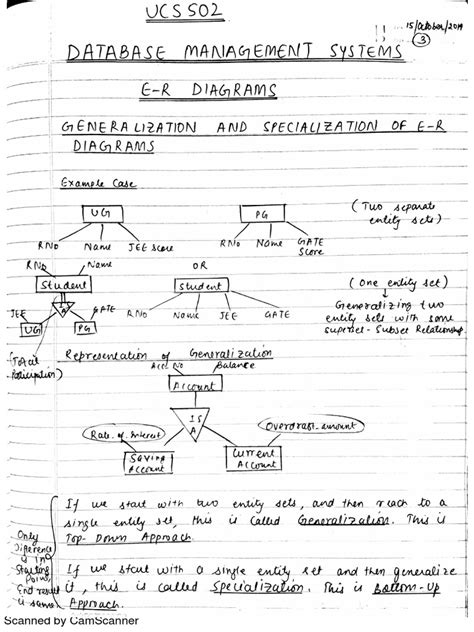 UCS502
15/October/2019
3
DATABASE MANAGEMENT SYSTEMS
E-R DIAGRAMS
GENERALIZATION AND SPECIALIZATION OF E-R
DIAGRAMS
Example Case
UG
PG
(Two separate
entity sets)
RNo Name JEE Score
RNo Name GATE
Score
RNo Name
OR
Student
Student
(One entity set)
IS
A
JEE
GATE
RNo Name JEE GATE
Generalizing two
entity sets with some
superset-Subset Relationship.
UG
PG
(Total
Participation)
Representation of Generalization
Acc. No Balance
Account
IS
A
Rate of Interest
Overdraft-amount
Saving
Account
Current
Account
If we start with two entity sets, and then reach to a
single entity set, this is called Generalization. This is
Top-Down Approach.
Only
Difference
is in
Starting
Point,
End result
is same
If we start with a single entity set and then generalize
it, this is called Specialization. This is Bottom-Up
Approach.
Scanned by CamScanner